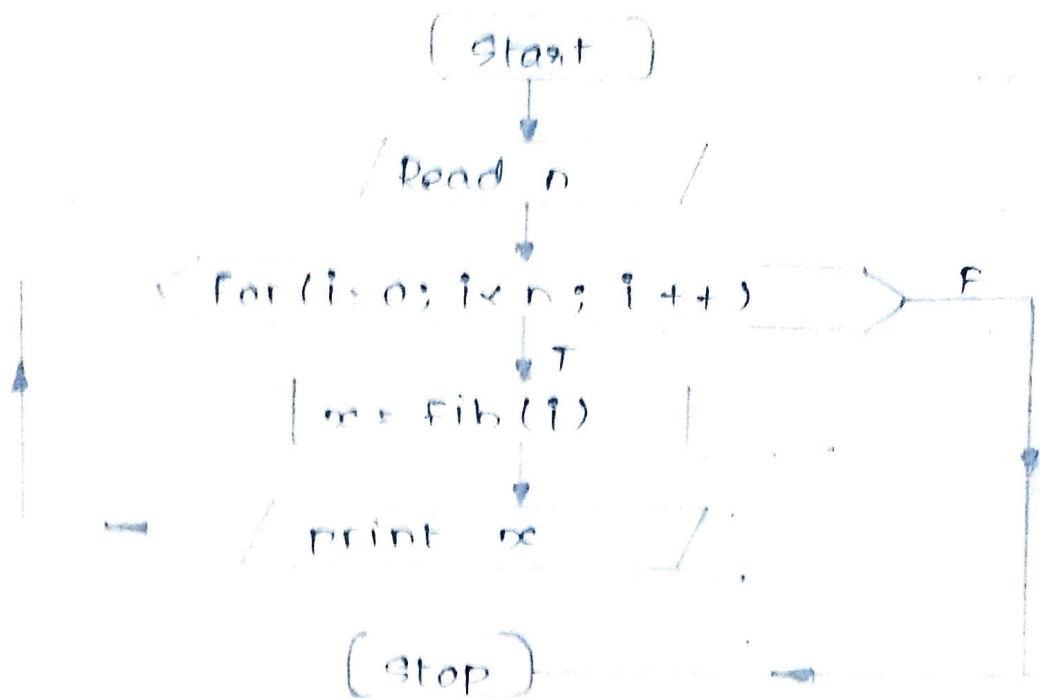 Start
Read n
for(i=0; i<n; i++)
F
T
x = fib(i)
print x
Stop